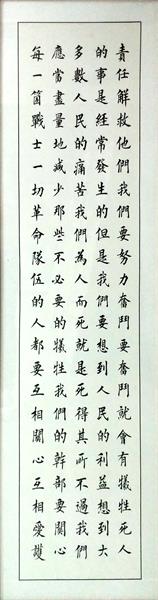 責任解救他們我們要努力奮鬥要奮鬥就會有犧牲死人
的事是經常發生的但是我們要想到人民的利益想到大
多數人民的痛苦我們為人而死就是死得其所不過我們
應當盡量地減少那些不必要的犧牲我們的幹部要關心
每一箇戰士一切革命隊伍的人都要互相關心互相愛護